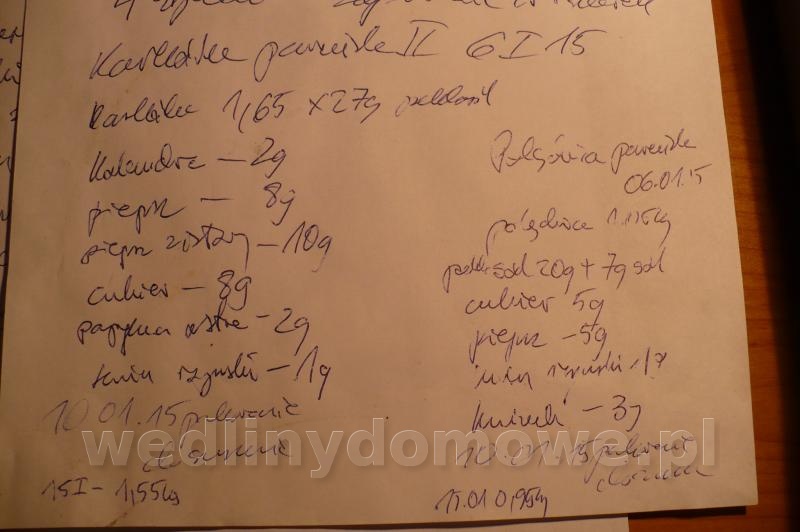 Karkówka parmeńska II 6 I 15
Karkówka 1,65 x 27g peklosól
Kolendra – 2g
pieprz – 8g
pieprz ziołowy – 10g
cukier – 8g
papryka ostra – 2g
kmin rzymski – 1g
10.01.15 pakowanie
do suszenia
15 I – 1,55kg
Polędwica parmeńska
06.01.15
polędwica 1.115kg
peklosól 20g + 7g sól
cukier 5g
pieprz – 5g
kmin rzymski
kminek – 3g
10.01.15 pakowanie
0,95kg
wedlinydomowe.pl